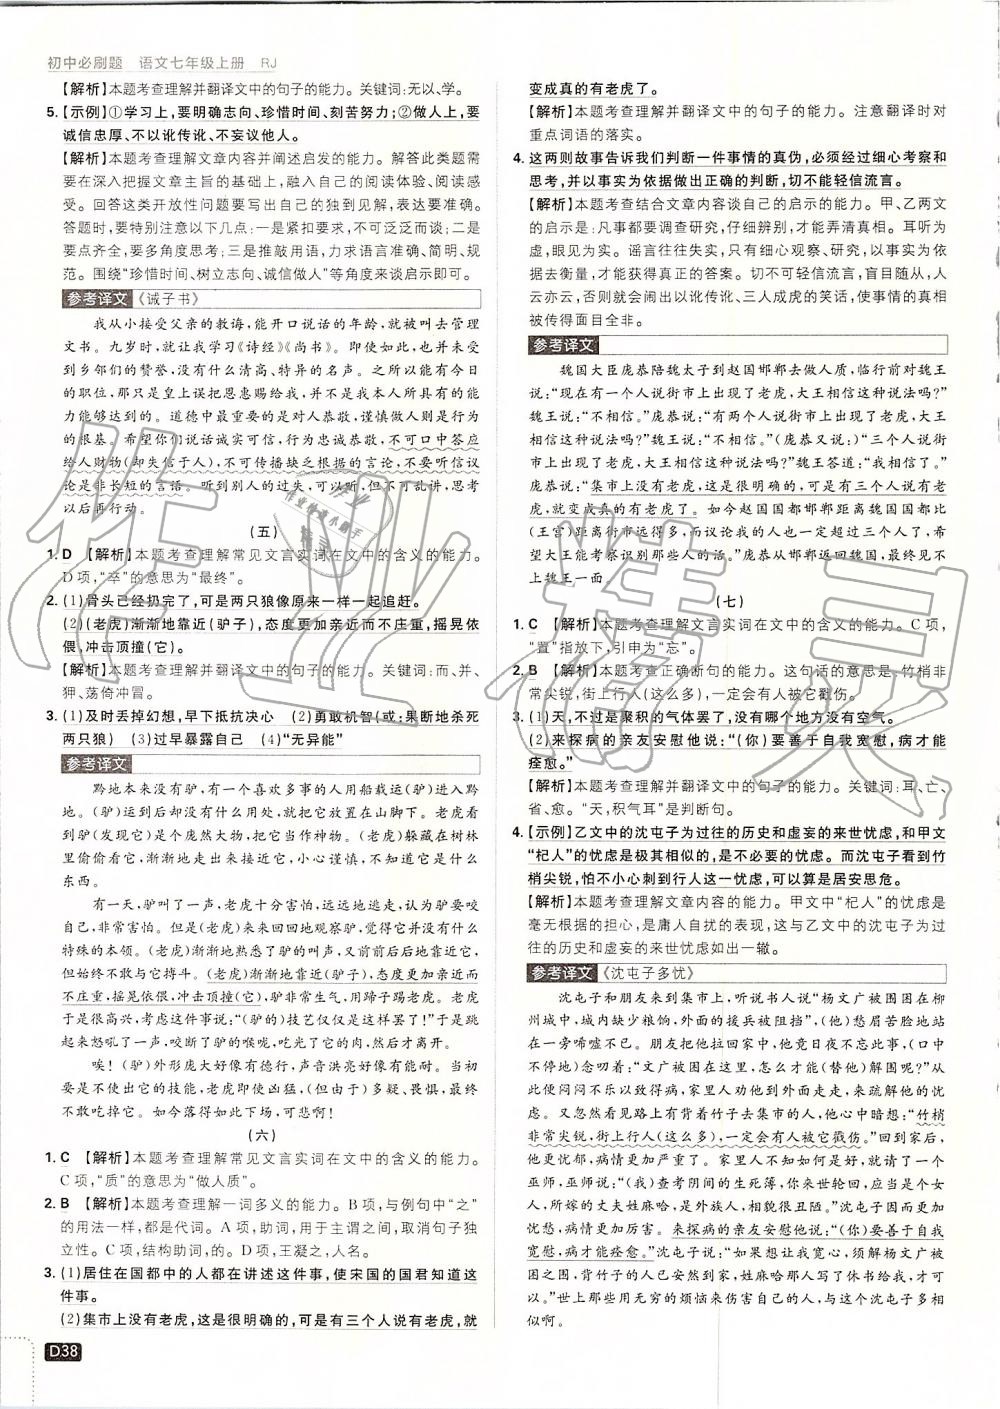 初中必刷题　语文七年级上册　RJ
【解析】本题考查理解并翻译文中的句子的能力。关键词:无以、学。
5. 【示例】①学习上,要明确志向、珍惜时间、刻苦努力;②做人上,要
诚信忠厚、不以讹传讹、不妄议他人。
【解析】本题考查理解文章内容并阐述启发的能力。解答此类题
需在深入把握文章主旨的基础上,融入自己的阅读体验、阅读感
受。回答这类开放性问题要写出自己的独到见解,表达要准确。
答题时,要特别注意以下几点:一是紧扣要求,不可泛泛而谈;二是
要点齐全,要多角度思考;三是推敲用语,力求语言准确、简明、规
范。围绕“珍惜时间、树立志向、诚信做人”等角度来谈启示即可。
参考译文《诫子书》
我从小接受父亲的教诲,能开口说话的年龄,就被叫去管理
文书。九岁时,就让我学习《诗经》《尚书》。即使如此,也并未受
到乡邻们的赞誉,没有什么清高、特异的名声。之所以能有今日
的职位,那只是皇上误把恩惠赐给我,并不是本人所具有的能
力能够达到的。道德中最重要的是对人恭敬,谨慎做人则是行为
的根基。希望你们说话诚实可信,行为端正恭敬,不可口中答应
给人财物(却失信于人),不可传播缺乏根据的言论,不要听信议
论是非长短的言语。听到别人的过失,可以听,但不可乱讲,思考
以后再行动。
(五)
1. D　【解析】本题考查理解常见文言实词在文中的含义的能力。
D项,“卒”的意思为“最终”。
2. (1)骨头已经扔完了,可是两只狼像原来一样一起追赶。
(2)(老虎)渐渐地靠近(驴子),态度更加亲近而不庄重,摇晃依
偎,冲击顶撞(它)。
【解析】本题考查理解并翻译文中的句子的能力。关键词:而、并、
狎、荡倚冲冒。
3. (1)及时丢掉幻想,早下抵抗决心　(2)勇敢机智(或:果断地杀死
两只狼)　(3)过早暴露自己　(4)“无异能”
参考译文
黔地本来没有驴,有一个喜欢多事的人用船载运(驴)进入黔
地。(驴)运到后却没有什么用处,就把它放置在山脚下。老虎看
到驴(发现它)是个庞然大物,把它当作神物。(老虎)躲藏在树林
里偷偷看它,渐渐地走出来接近它,小心谨慎,不知道它是什么
东西。
有一天,驴叫了一声,老虎十分害怕,远远地逃走,认为驴要咬
自己,非常害怕。但是(老虎)来来回回地观察驴,觉得它没有什么
特殊的本领。(老虎)渐渐地熟悉了驴的叫声,又前前后后地靠近它,
但始终不敢与它搏斗。(老虎)渐渐地靠近(驴子),态度更加亲近而
不庄重,摇晃依偎,冲击顶撞(它),驴非常生气,用蹄子踢老虎。老虎
于是很高兴,考虑这件事,说:“(驴的)技艺仅仅是这样罢了!”于是跳
起来大吼了一声,咬断了驴的喉咙,吃光了它的肉,然后才离开。
唉!(驴)外形庞大好像有德行,声音洪亮好像有能耐。当初
要是不使出它的技能,老虎即使凶猛,(但由于)多疑、畏惧,最终
不敢吃掉它。如今落得如此下场,可悲啊!
(六)
1. C　【解析】本题考查理解常见文言实词在文中的含义的能力。
C项,“质”的意思为“做人质”。
2. B　【解析】本题考查理解一词多义的能力。B项,与例句中“之”
的用法一样,都是代词。A项,助词,用于主谓之间,取消句子独
立性。C项,结构助词,的。D项,王凝之,人名。
3. (1)居住在国都中的人都在讲述这件事,使宋国的国君知道这
件事。
(2)集市上没有老虎,是很清楚的,可是有三个人说有老虎,就
D38
变成真的有老虎了。
【解析】本题考查理解并翻译文中的句子的能力。注意翻译时对
重点词语的落实。
4. 这两则故事告诉我们判断一件事情的真伪,必须经过细心考察和
思考,并以事实为依据做出正确的判断,切不能轻信流言。
【解析】本题考查结合文章内容谈自己的启示的能力。甲、乙两文
的启示是:凡事都要调查研究,仔细辨别,才能弄清真相。耳听为
虚,眼见为实。谣言往往失实,只有细心观察、研究、以事实为依
据去衡量,才能获得真正的答案。切不可轻信流言,盲目随从,人
云亦云,否则就会闹出以讹传讹、三人成虎的笑话,使事情的真相
被传得面目全非。
参考译文
魏国大臣庞恭陪魏太子到赵国邯郸去做人质,临行前对魏王
说:“现在如果有一个人说街市上出现了老虎,大王相信这种说法吗?”
魏王说:“不相信。”庞恭说:“有两个人说街市上出现了老虎,大王
相信这种说法吗?”魏王说:“不相信。”(庞恭又说:)“三个人说街
市上出现了老虎,大王相信这种说法吗?”魏王答道:“我相信了。”
庞恭说:“集市上没有老虎,是很清楚的,可是有三个人说有老
虎,就变成真的有老虎了。如今赵国国都邯郸距离魏国国都比
(王宫)距离街市远得多,而议论我的人也一定超过三个人,希
望大王能考察识别那些人的话。”庞恭从邯郸返回魏国,最终见不
上魏王一面。
(七)
1. C　【解析】本题考查理解文言实词在文中的含义的能力。C项,
“置”指放下,引申为“忘”。
2. B　【解析】本题考查正确断句的能力。这句话的意思是:竹梢非
常尖锐,街上行人(这么多),一定会有人被它戳伤。
3. (1)天,不过是聚积的气体罢了,没有哪个地方没有空气。
(2)来探病的亲友安慰他说:“(你)要善于自我宽慰,病才能
痊愈。”
【解析】本题考查理解并翻译文中的句子的能力。关键词:耳、亡、
省、愈。“天,积气耳”是判断句。
4. 【示例】乙文中的沈屯子为过往的历史和虚妄的来世忧虑,和甲文
“杞人”的忧虑是极其相似的,是不必要的忧虑。而沈屯子看到竹
梢尖锐,怕不小心刺到行人这一忧虑,可以算是居安思危。
【解析】本题考查理解文章内容的能力。甲文中“杞人”的忧虑是
毫无根据的担心,是庸人自扰的表现,这与乙文中的沈屯子为过
往的历史和虚妄的来世忧虑如出一辙。
参考译文《沈屯子多忧》
沈屯子和朋友来到集市上,听说书人说“杨文广被围困在柳
州城中,城内缺少粮饷,外面的援兵被阻挡”,(他)愁眉苦脸地站
在一旁唏嘘不已。朋友把他拉回家中,他日夜不忘这件事,(口中
不停地)念叨着:“文广被围困在这里,怎么才能(替他)解围呢?”从
此便闷闷不乐以致得病,家里人劝他到外面走走,来疏解他的忧
虑。又忽然看见路上有扛着竹子去集市的人,他心中暗想:“竹梢
非常尖锐,街上行人(这么多),一定会有人被它戳伤。”回到家后,
他更忧郁,病情更加严重了。家里人不知如何是好,就请了一个
巫师,巫师说:“(我)查看阴间的生死簿,你来世轮回,应当是个女
人,所嫁的丈夫姓麻哈,是外族人,相貌很丑。”沈屯子因而更加
忧愁,病情更加厉害。来探病的亲友安慰他说:“(你)要善于自我
宽慰,病才能痊愈。”沈屯子说:“如果想让我宽心,须解杨文广被
困之围,背竹子的人回到家,姓麻哈那人写了休书给我,才可
以。”世上那些用无穷的烦恼来伤害自己的人,与这个沈屯子多相
似啊。